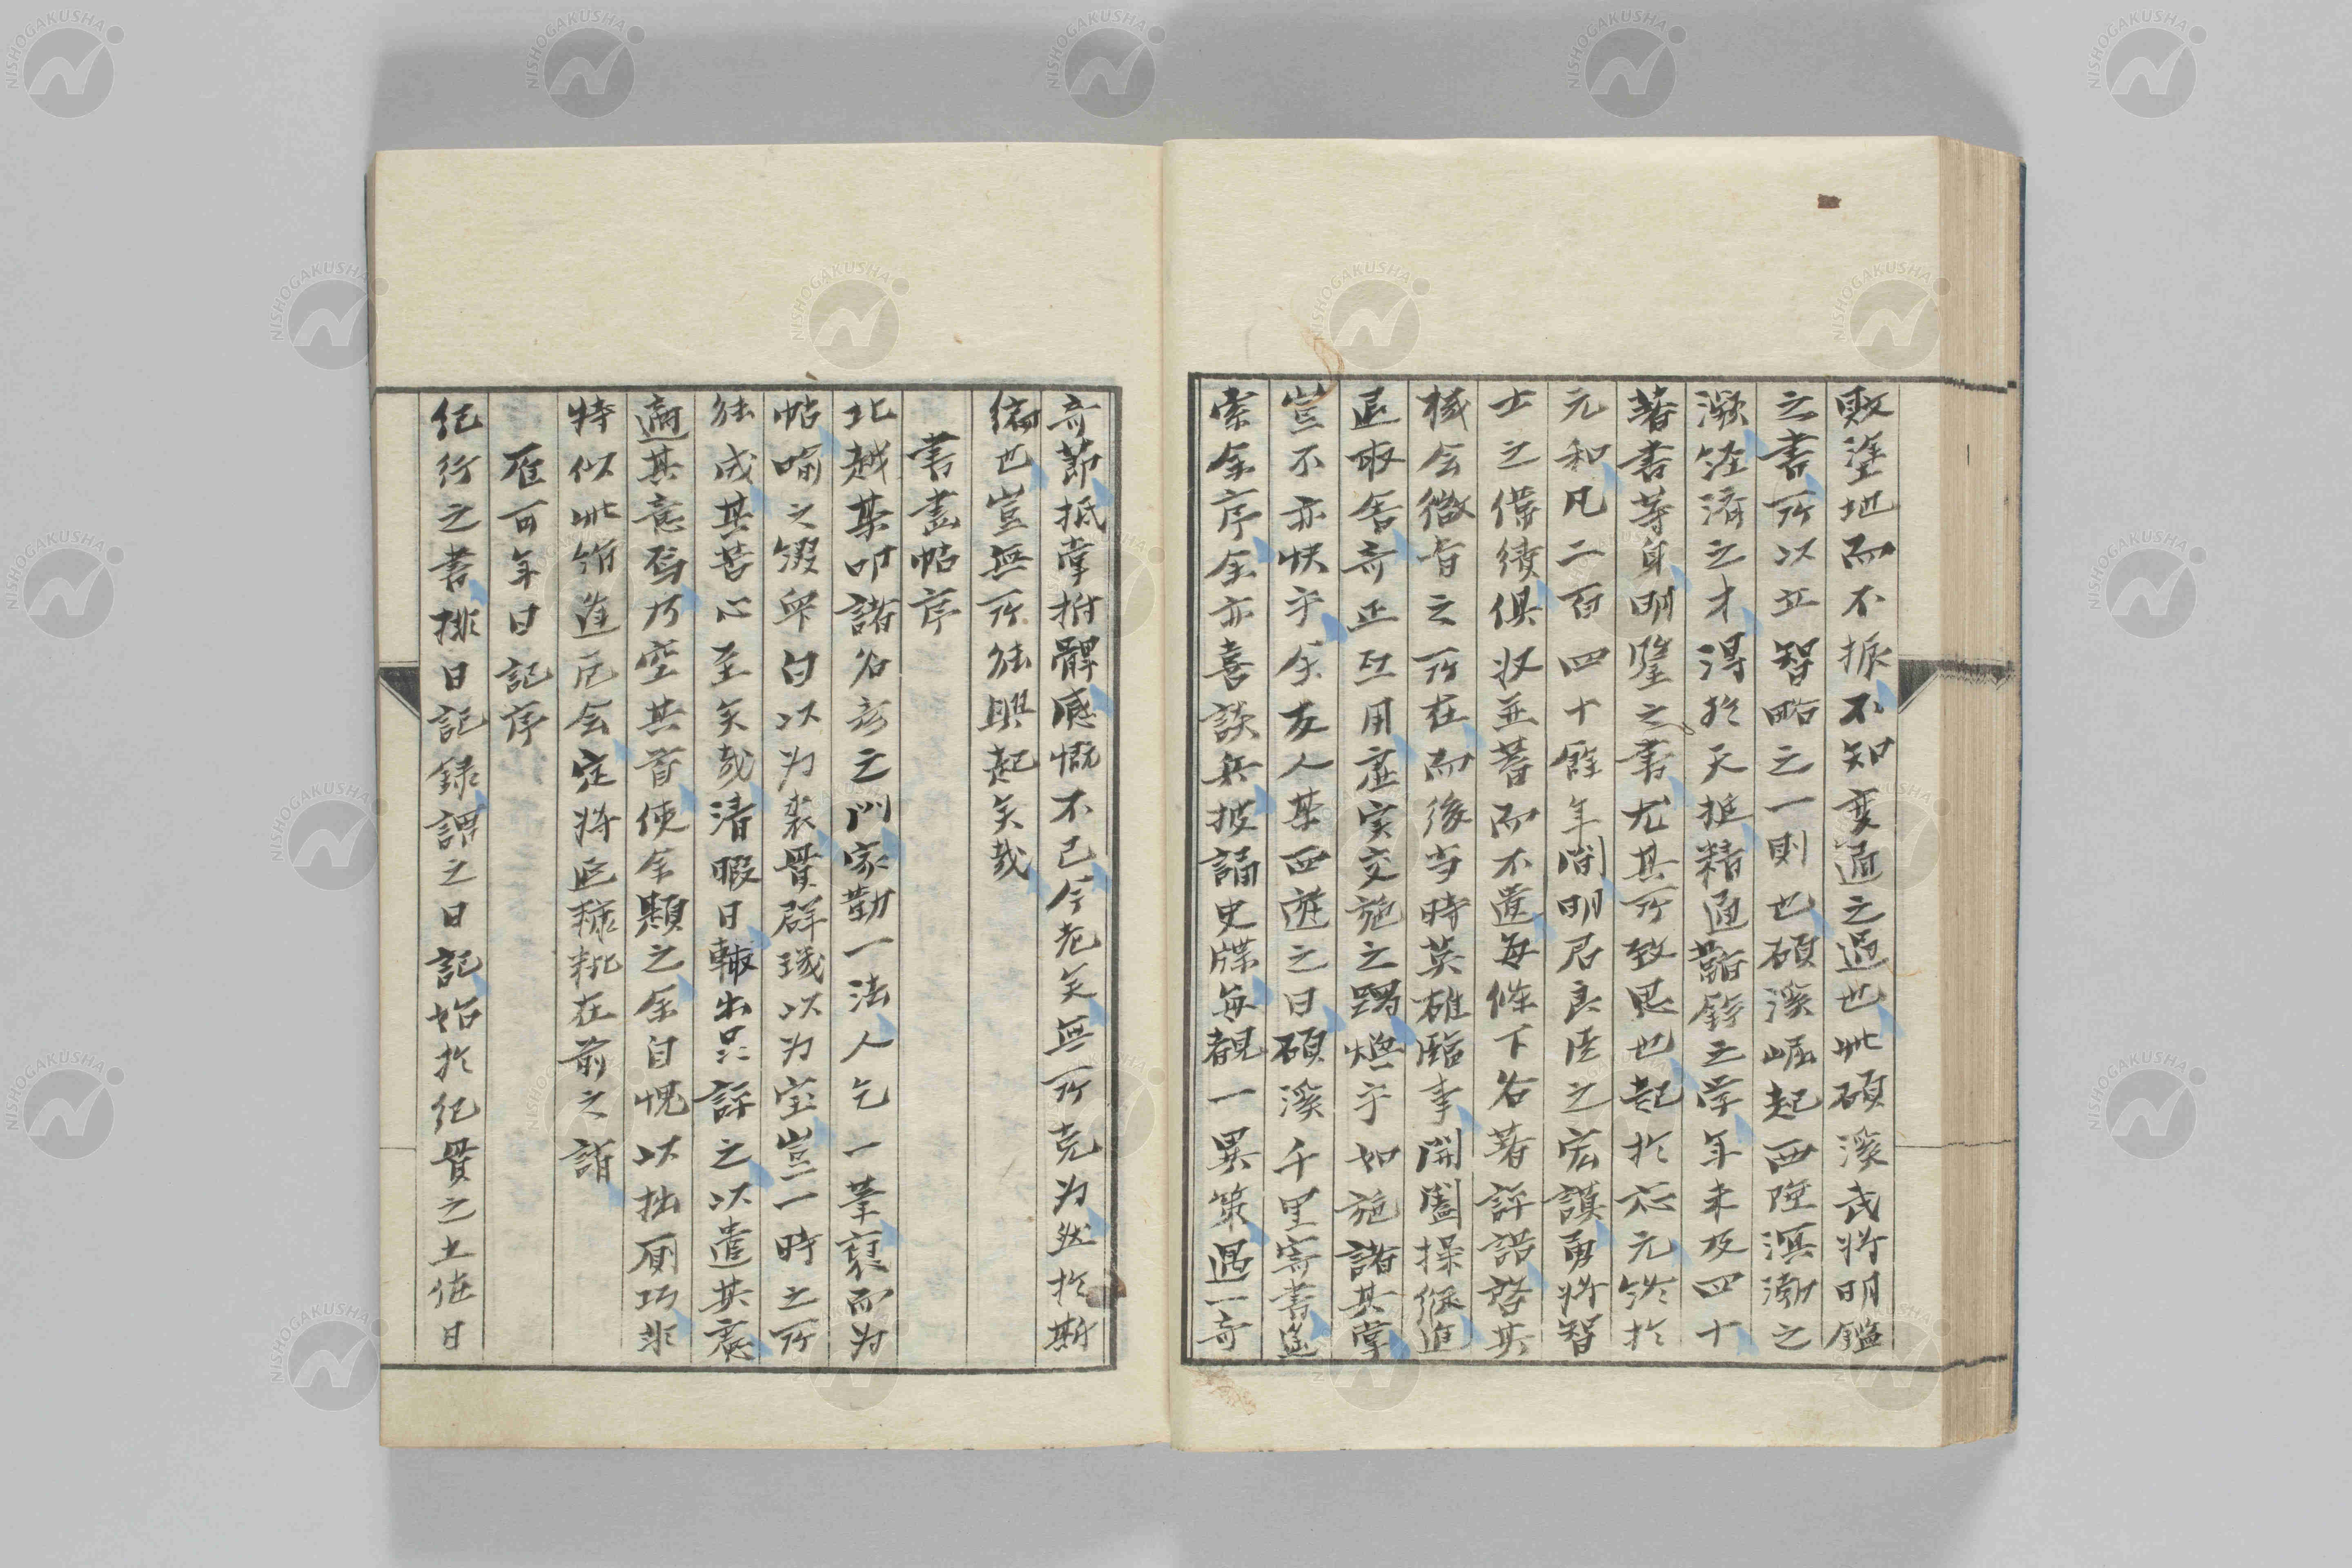 敗塗地而不振不知変通之過也此碩溪武将明鑑
之書所以立智略之一則也碩溪崛起西陲溟渤之
濒経済之才得於天挺精通韜鈴之学年未及四十
著書等身明鑒之書尤其所致思也起於応元終於
元和凡二百四十餘年間明君良臣之宏謨勇将智
士之偉績俱収並蓄而不遺每條下各著評語啓其
機会微旨之所在而後当時英雄臨事開闔操縦進
退取舎奇正互用虚実交施之蹰燃乎如施諸其掌
豈不亦快乎余友人某西遊之日碩溪千里寄書遥
索余序余亦喜談兵披誦史牒每覩一異策遇一奇
奇節抵掌拊髀感慨不已今老矣無所克为然於斯
編也豈無所能興起矣哉
書畫帖序
北越某叩諸名彦之門家勤一法人乞一葦裒而为
帖喻之綴衆白以为裘貫群璣以为宝豈一時之所
能成其苦心至矣哉清暇日輙出品評之以遣其懲
適其意為巧空其首使余題之余自愧以拙厠巧非
特似此箱進厄会定将區糠粃在前之誚
雁可年日記序
紀行之書排日記録謂之日記始於紀貫之土佐日